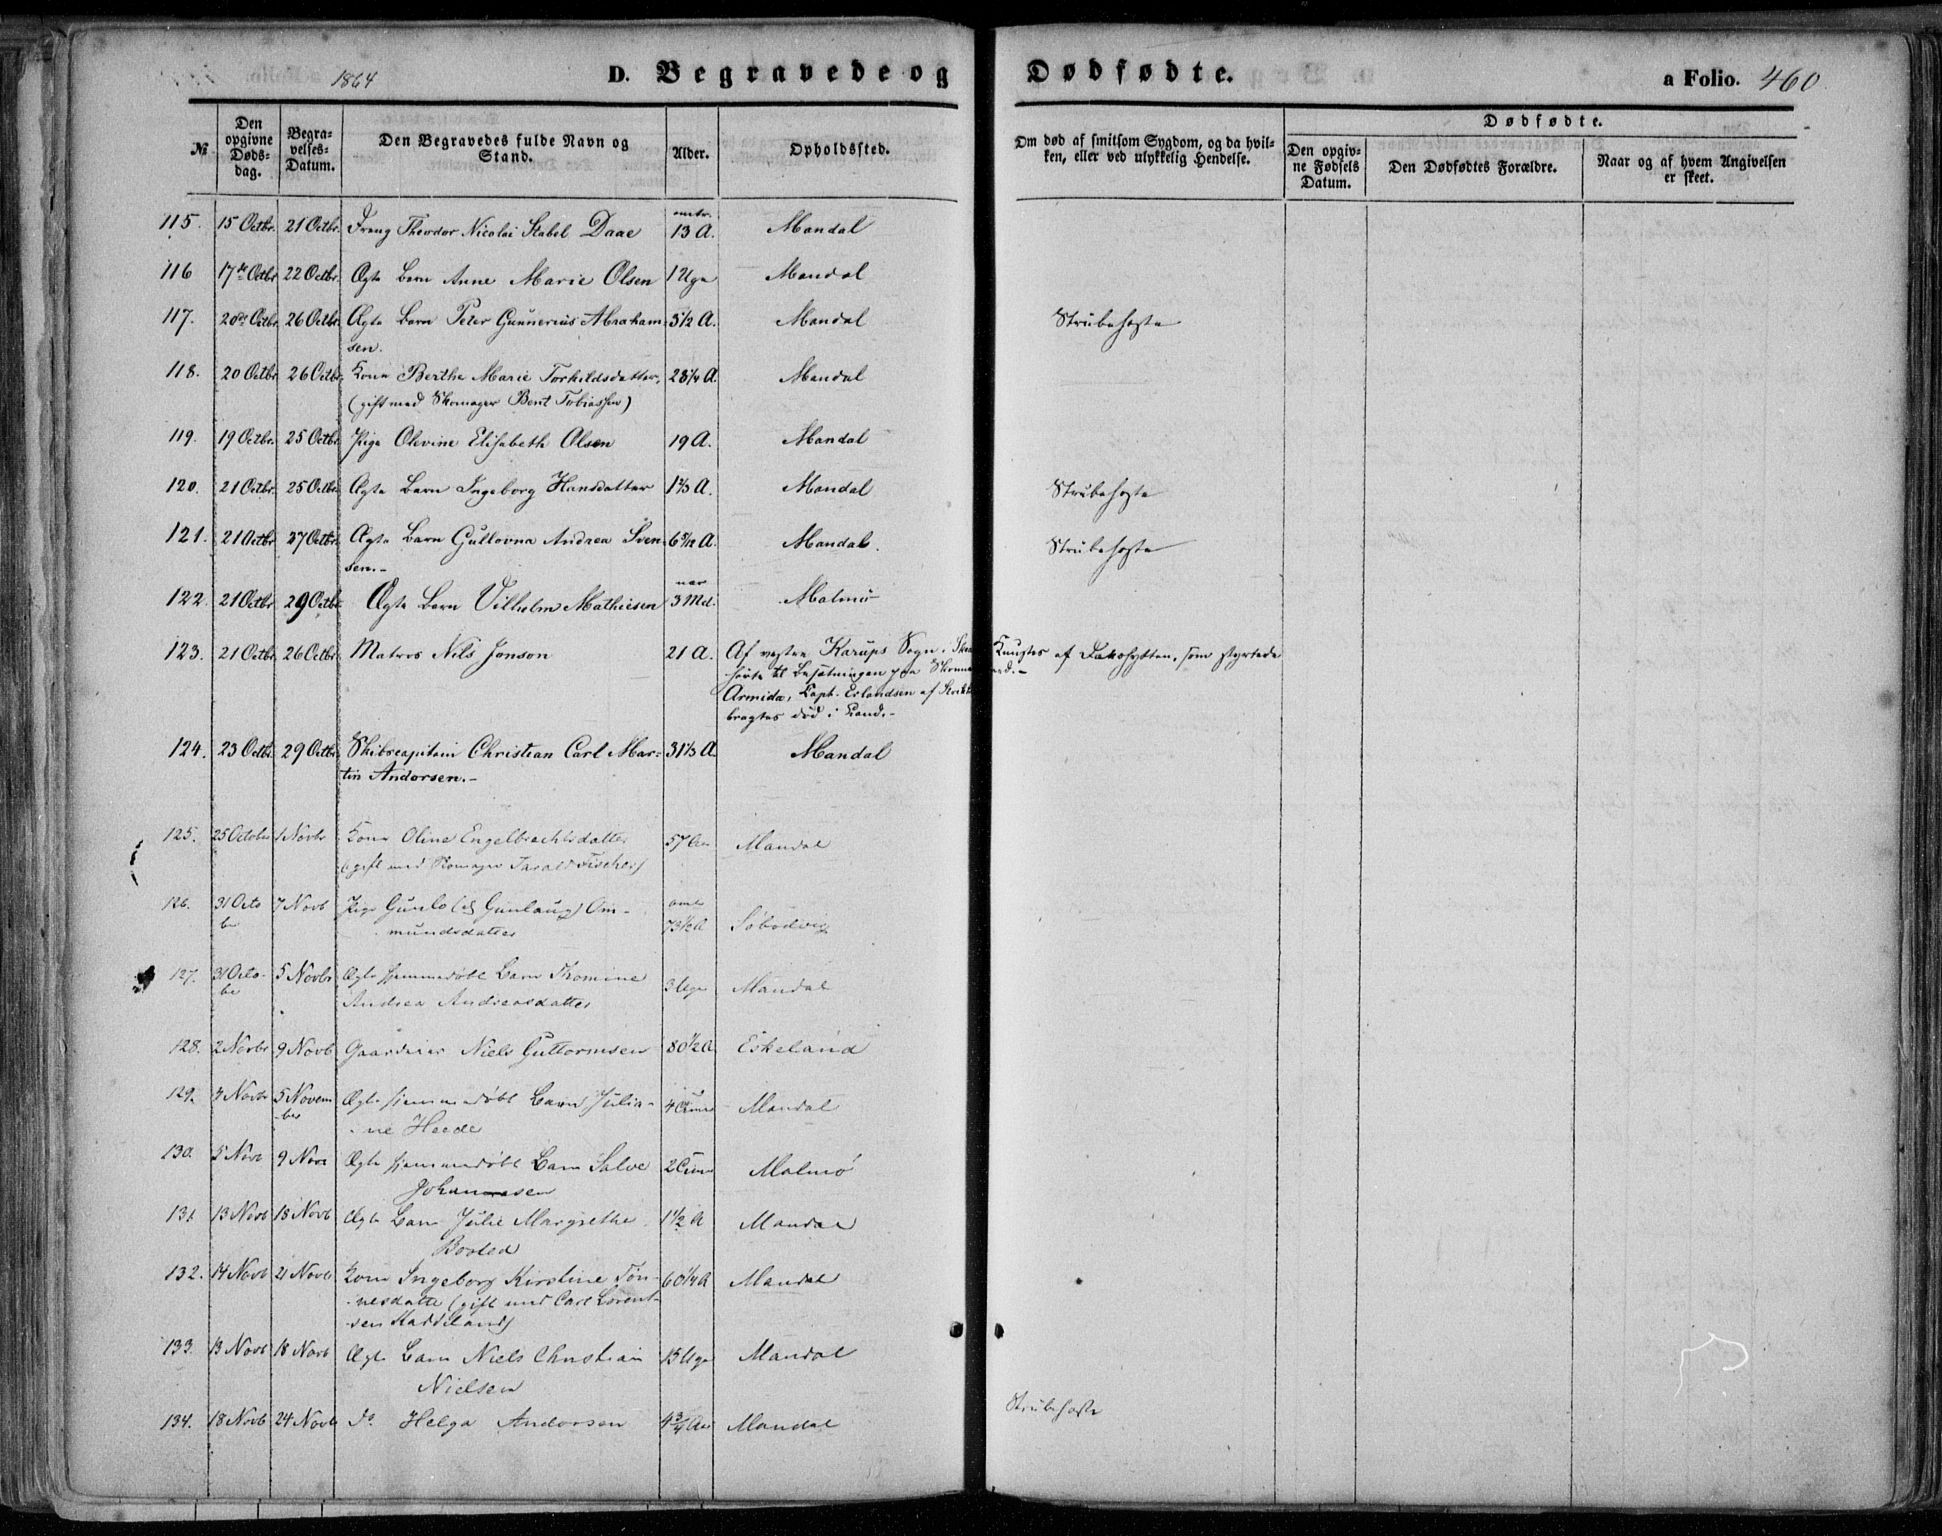 1864 D. Begravede og Dødfødte. a Folio. 460.
№ Den opgivne Døds-dag. Begra-velses-Datum. Den Begravedes fulde Navn og Stand. Alder. Opholdssted. Om død af smitsom Sygdom, og da hvil-ken, eller ved ulykkelig Hendelse. Dødfødte.
Den opgiv-ne Fødsels Datum. Den Dødfødtes Forældre. Naar og af hvem Angivelsen er skeet.
115. 15 Octbr. 21 Octbr. Theodor Nicolai Stabel Daae omtr. 13 A. Mandal
116 17de Octbr 22 Octbr. Ægte Barn Anne Marie Olsen 1 Uge Mandal
117. 20de Octbr 26 Octbr. Ægte Barn Peter Gunnerius Abraham- 5½ A. Mandal Strubehoste
sen.
118. 20 Octbr. 26 Octbr. Kone Berthe Marie Torkildsdatter, 28¼ A. Mandal
(gift med Skomager Bent Tobiassen)
119. 19 Octbr. 25 Octbr. Pige Olevine Elisabeth Olsen 19 A. Mandal
120. 21 Octbr. 25 Octbr. Ægte Barn Ingeborg Hansdatter A. Mandal Strubehoste
121. 21 Octbr 27 Octbr. Ægte Barn Gullovna Andrea Sven- A. Mandal. Strubehoste
sen.-
122. 21 Octbr. 29 Octbr. Ægte Barn Vilhelm Mathiesen nær 3 Md. Malmø
123. 21 Octbr. 26 Octbr. Matros Nils Jonson 21 A. Af vestre Karups Sogn i Knustes af som styrtede
hørte til Besætningen paa ned.-
Armida, Capt. Erlandsen af
bragtes død i Land.-
124. 23 Octbr. 29 Octbr. Skibscapitain Christian Carl Mar- 31⅓ A Mandal
tin Andorsen.-
125. 25 October 1 Novbr Kone Oline Engelbrechtsdatter 57 Aar Mandal
(gift med Skomager Tarald Fischer)
126. 31 Octo 7 Novb Pige Gunlo (el Gunlaug) Om- omt
ber mundsdatter 73½ A
127. 31 Octo- 5 Novbr Ægte hjemmedøbt Barn Thomine 3 Uger Mandal
ber Andrea Andreasdatter
128. 2 Novbr 9 Novb Gaardeier Niels Guttormsen 80½ A Eskeland
129. 4 Novbr 5 Novem Ægte hjemmedøbt Barn Julia- Mandal
ber ne Heede
130. 5 Novb 9 Novb Ægte hjemmedøbt Barn Salve Malmø
Johannesen
131. 13 Novb 18 Novb Ægte Barn Julie Margrethe 1½ A Mandal
132. 14 Novb 21 Novb Kone Ingeborg Kirstine Tøn- 60¼ A Mandal
nesdatter (gift med Carl Lorent-
sen Haddeland)
133. 13 Novb 18 Novb Ægte Barn Niels Christian 15 Uger Mandal
Nielsen
134. 18 Novb 24 Novb Do Helga Andorsen 4¾ Aar Mandal Strubehoste